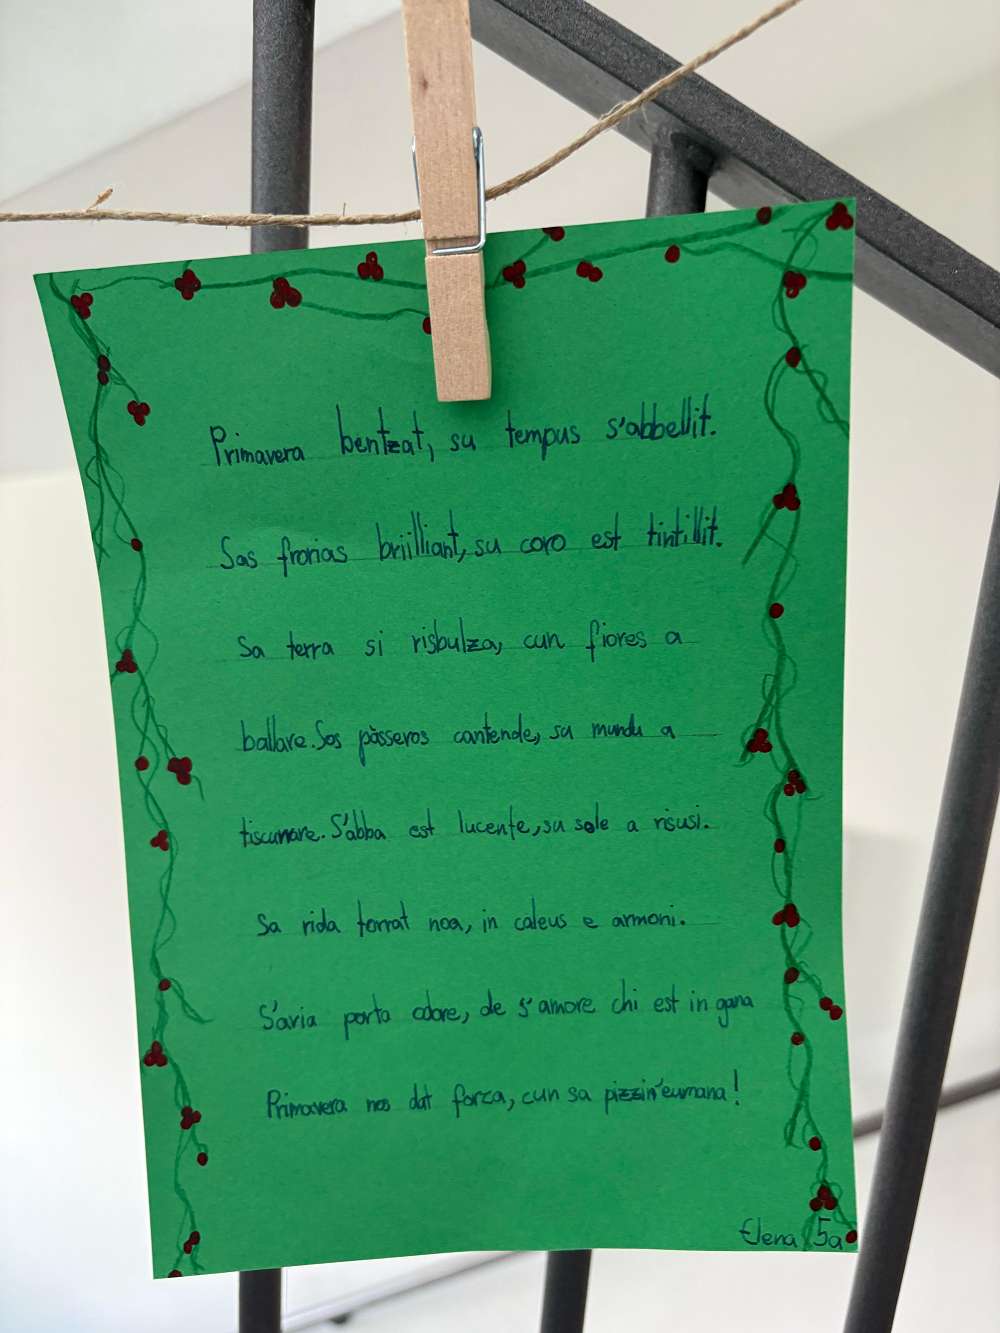 Primavera bentzat, su tempus s'abbellit.
Sas frorias briilliant, su coro est tintillit.
Sa terra si risbulza, cun fiores a
ballare. Sos pàsseros cantende, su mundu a
tiscunare. S'abba est lucente, su sole a risusi.
Sa rida torrat noa, in caleus e armoni.
S'aria porta odore, de s'amore chi est in gana
Primavera nos dat forza, cun sa pizzin'eumana!
Elena 5a